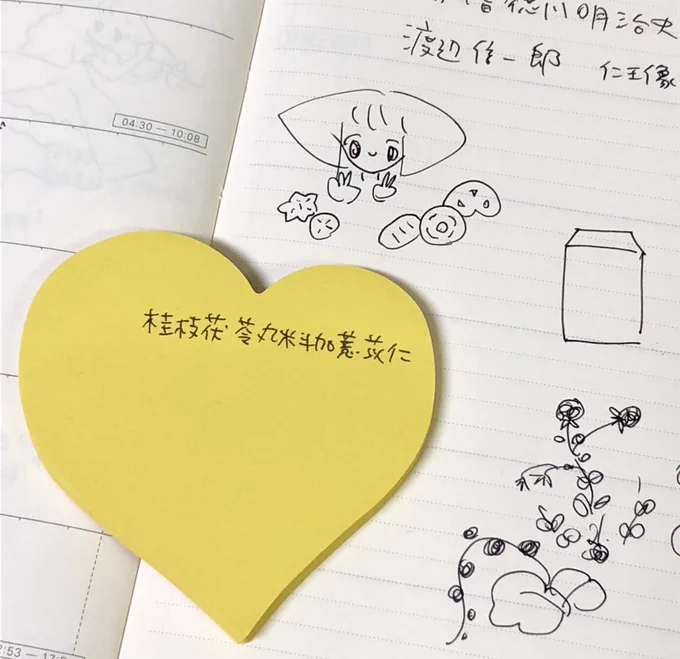 徳川明治史
渡辺 一郎 仁王像
04:30 — 10:08
桂枝茯苓丸料加薏苡仁